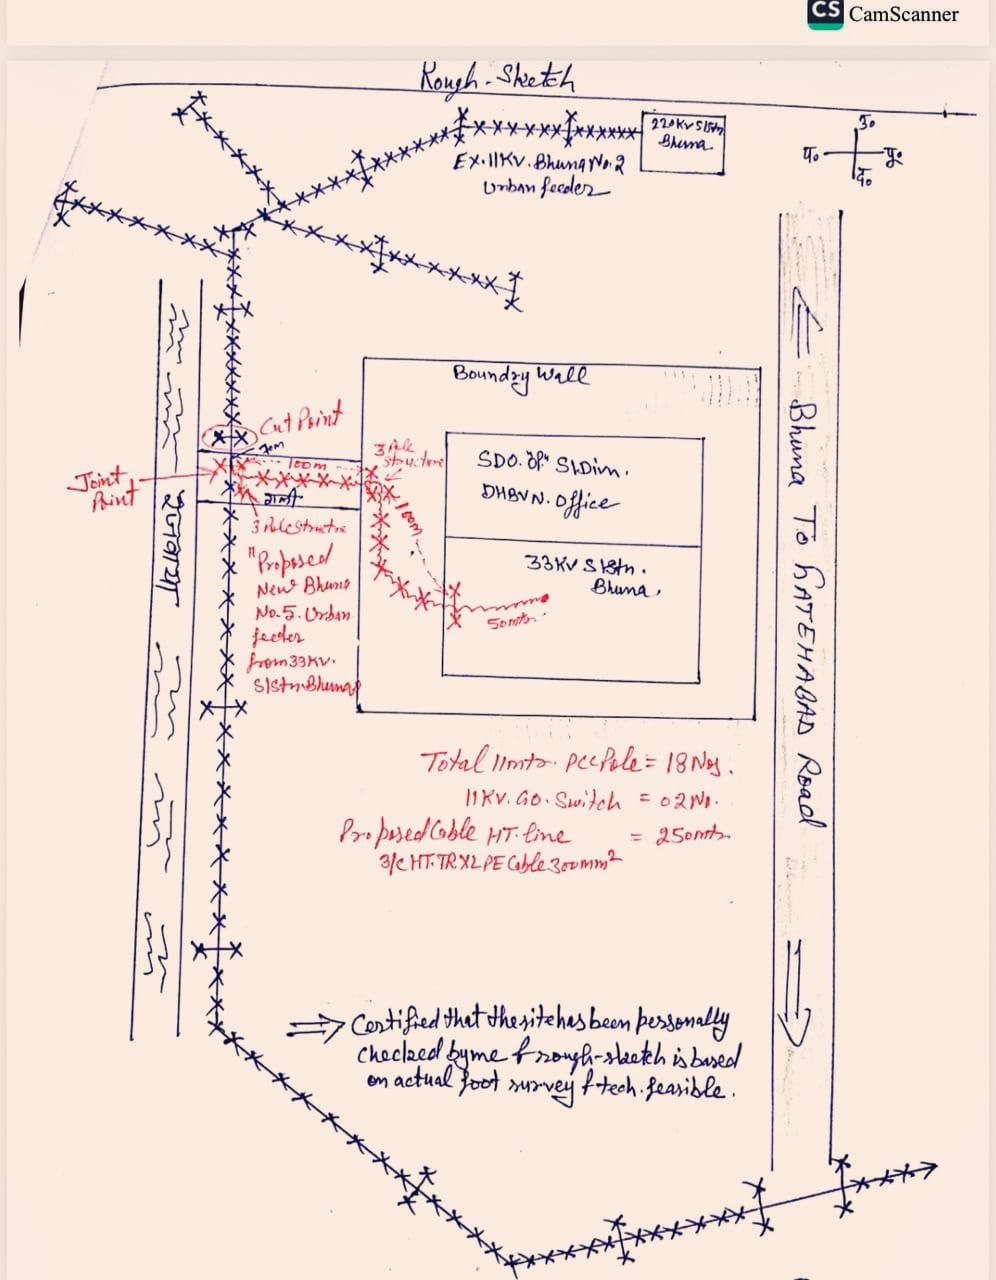 CS CamScanner
Rough-Sketch
220KV S/Stn
Bhuna
Ex.11KV.Bhuna No.2
Urban feeder
उ०
प०
पू०
द०
Boundry Wall
Cut Point
100m
3 Pole
Structure
Joint
Point
गली
100m
SDO. OP. S/Divn.
DHBVN. Office
33KV S/Stn.
Bhuna.
50mtr.
3 Pole Structre
"Proposed
New Bhuna
No.5. Urban
feeder
from 33KV.
S/Stn. Bhuna"
Bhuna To FATEHABAD Road
Total 11mtr. PCC Pole = 18 Nos.
11KV. GO. Switch = 02 No.
Proposed Cable HT. line = 250mtr
3/C HT. TR XLPE Cable 300mm²
⇒ Certified that the site has been personally
checked by me & rough-sketch is based
on actual foot survey & tech. feasible.